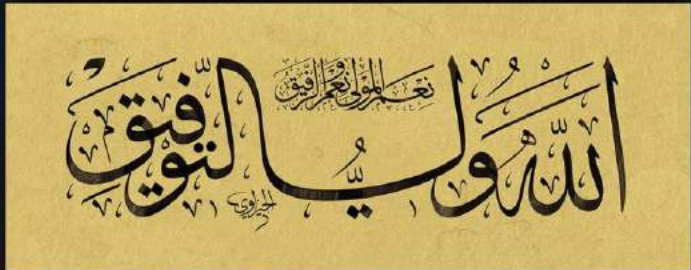 الله ولي التوفيق
نعم المولى ونعم الرفيق